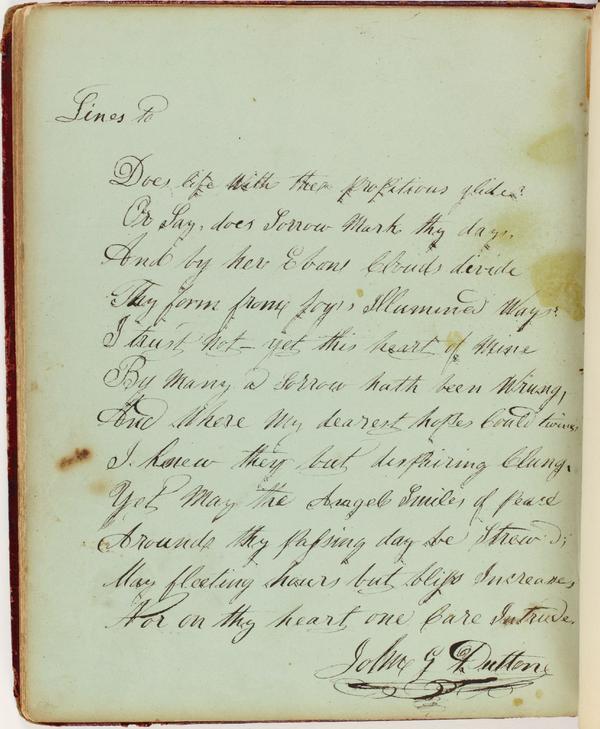 Lines to
Does life with thee propitious glide?
Or Say, does Sorrow Mark thy days,
And by her Ebons Clouds divide
Thy form from joys Illumined Ways?
I trust not - yet this heart of Mine
By Many a Sorrow hath been Wrung,
And Where My dearest hopes Could twine
I knew they but despairing Clung.
Yet May the Angel Smiles of peace
Around thy passing day be Strew'd;
May fleeting hours but bliss Increase,
Nor on thy heart one Care Intrude.
John G Dutton